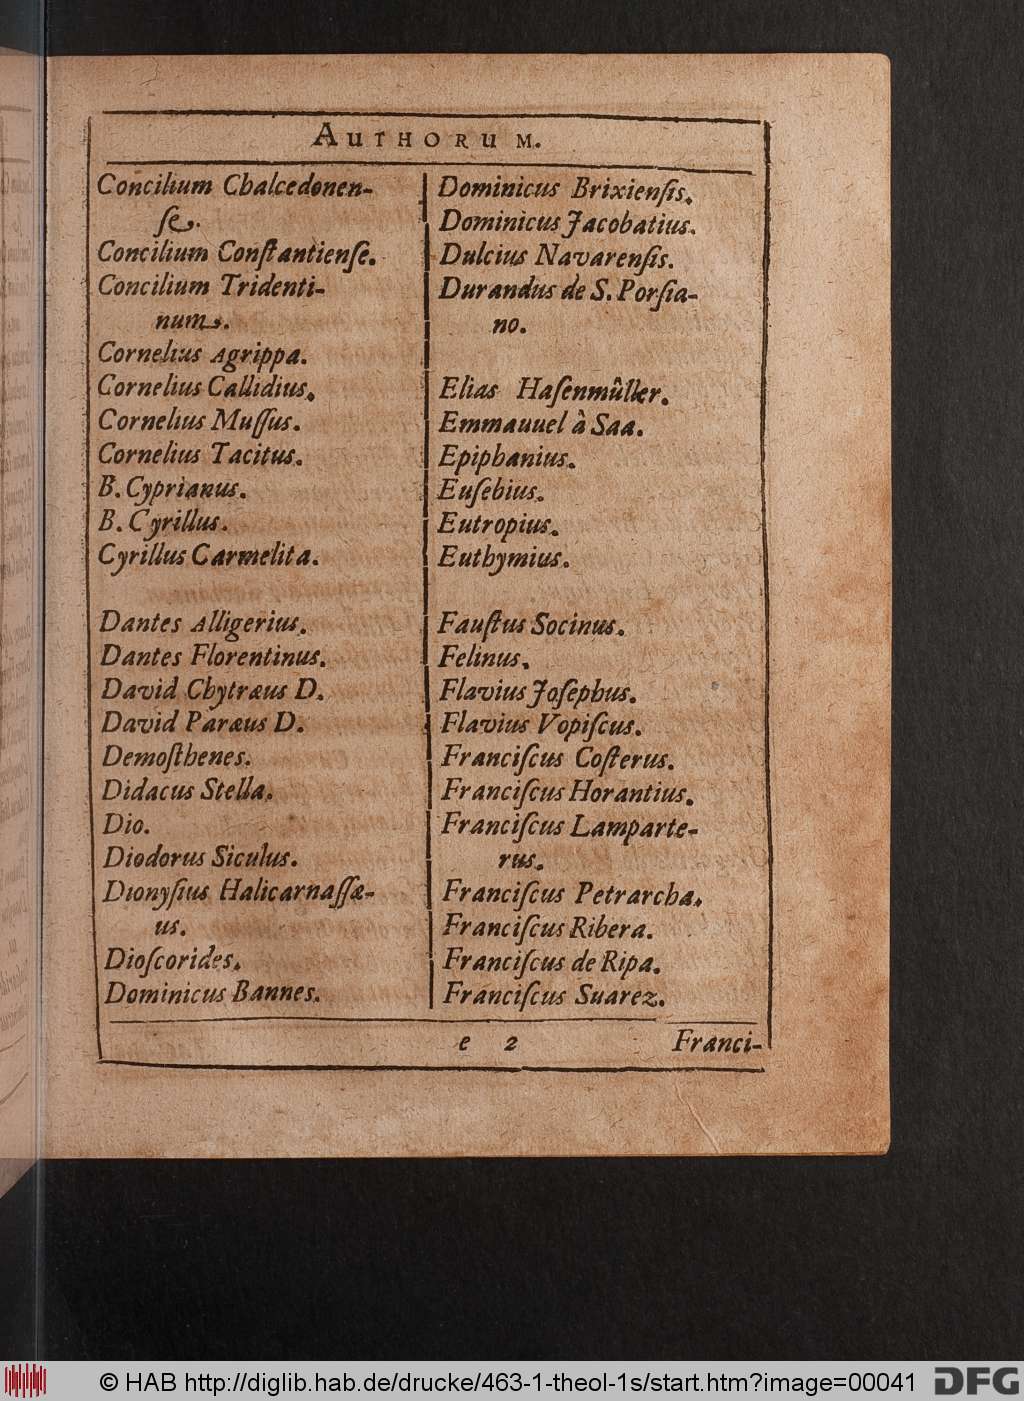 AUTHORUM.
Concilium Chalcedonen-
ſe.
Concilium Conſtantienſe.
Concilium Tridenti-
num.
Cornelius Agrippa.
Cornelius Callidius.
Cornelius Muſſus.
Cornelius Tacitus.
B. Cyprianus.
B. Cyrillus.
Cyrillus Carmelita.
Dantes Alligerius.
Dantes Florentinus.
David Chytræus D.
David Paræus D.
Demoſthenes.
Didacus Stella.
Dio.
Diodorus Siculus.
Dionyſius Halicarnaſſæ-
us.
Dioſcorides.
Dominicus Bannes.
Dominicus Brixienſis.
Dominicus Jacobatius.
Dulcius Navarenſis.
Durandus de S. Porſia-
no.
Elias Haſenmûller.
Emmauuel à Saa.
Epiphanius.
Euſebius.
Eutropius.
Euthymius.
Fauſtus Socinus.
Felinus.
Flavius Joſephus.
Flavius Vopiſcus.
Franciſcus Coſterus.
Franciſcus Horantius.
Franciſcus Lamparte-
rus.
Franciſcus Petrarcha.
Franciſcus Ribera.
Franciſcus de Ripa.
Franciſcus Suarez.
e 2 Franci-
© HAB http://diglib.hab.de/drucke/463-1-theol-1s/start.htm?image=00041 DFG